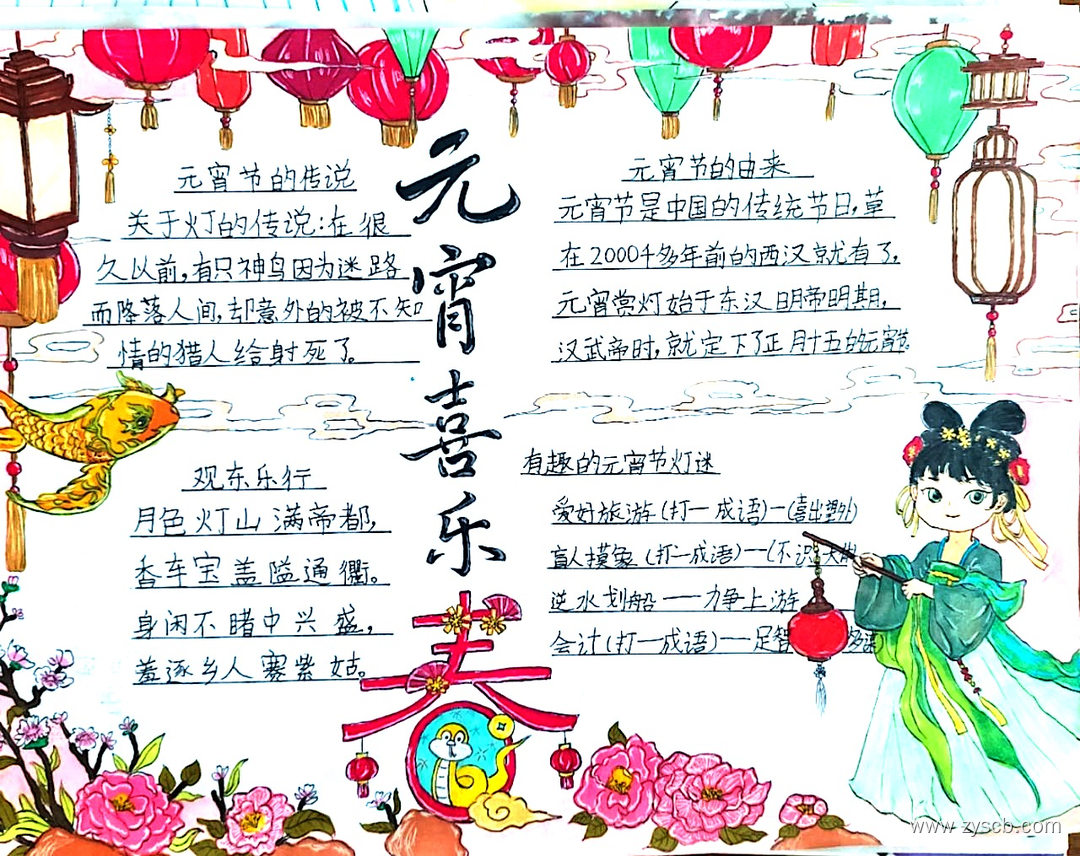 元宵喜乐
元宵节的传说
关于灯的传说:在很
久以前,有只神鸟因为迷路
而降落人间,却意外的被不知
情的猎人给射死了。
元宵节的由来
元宵节是中国的传统节日,草
在2000千多年前的西汉就有了,
元宵赏灯始于东汉明帝明期,
汉武帝时,就定下了正月十五的元宵节。
观东乐行
月色灯山满帝都,
香车宝盖隘通衢。
身闲不睹中兴盛,
羞逐乡人赛紫姑。
有趣的元宵节灯迷
爱好旅游(打一成语)一(喜出望外)
盲人摸象(打一成语)一(不识大
逆水划船一一力争上游
会计(打一成语)一足智多谋
春
www.zyscb.com